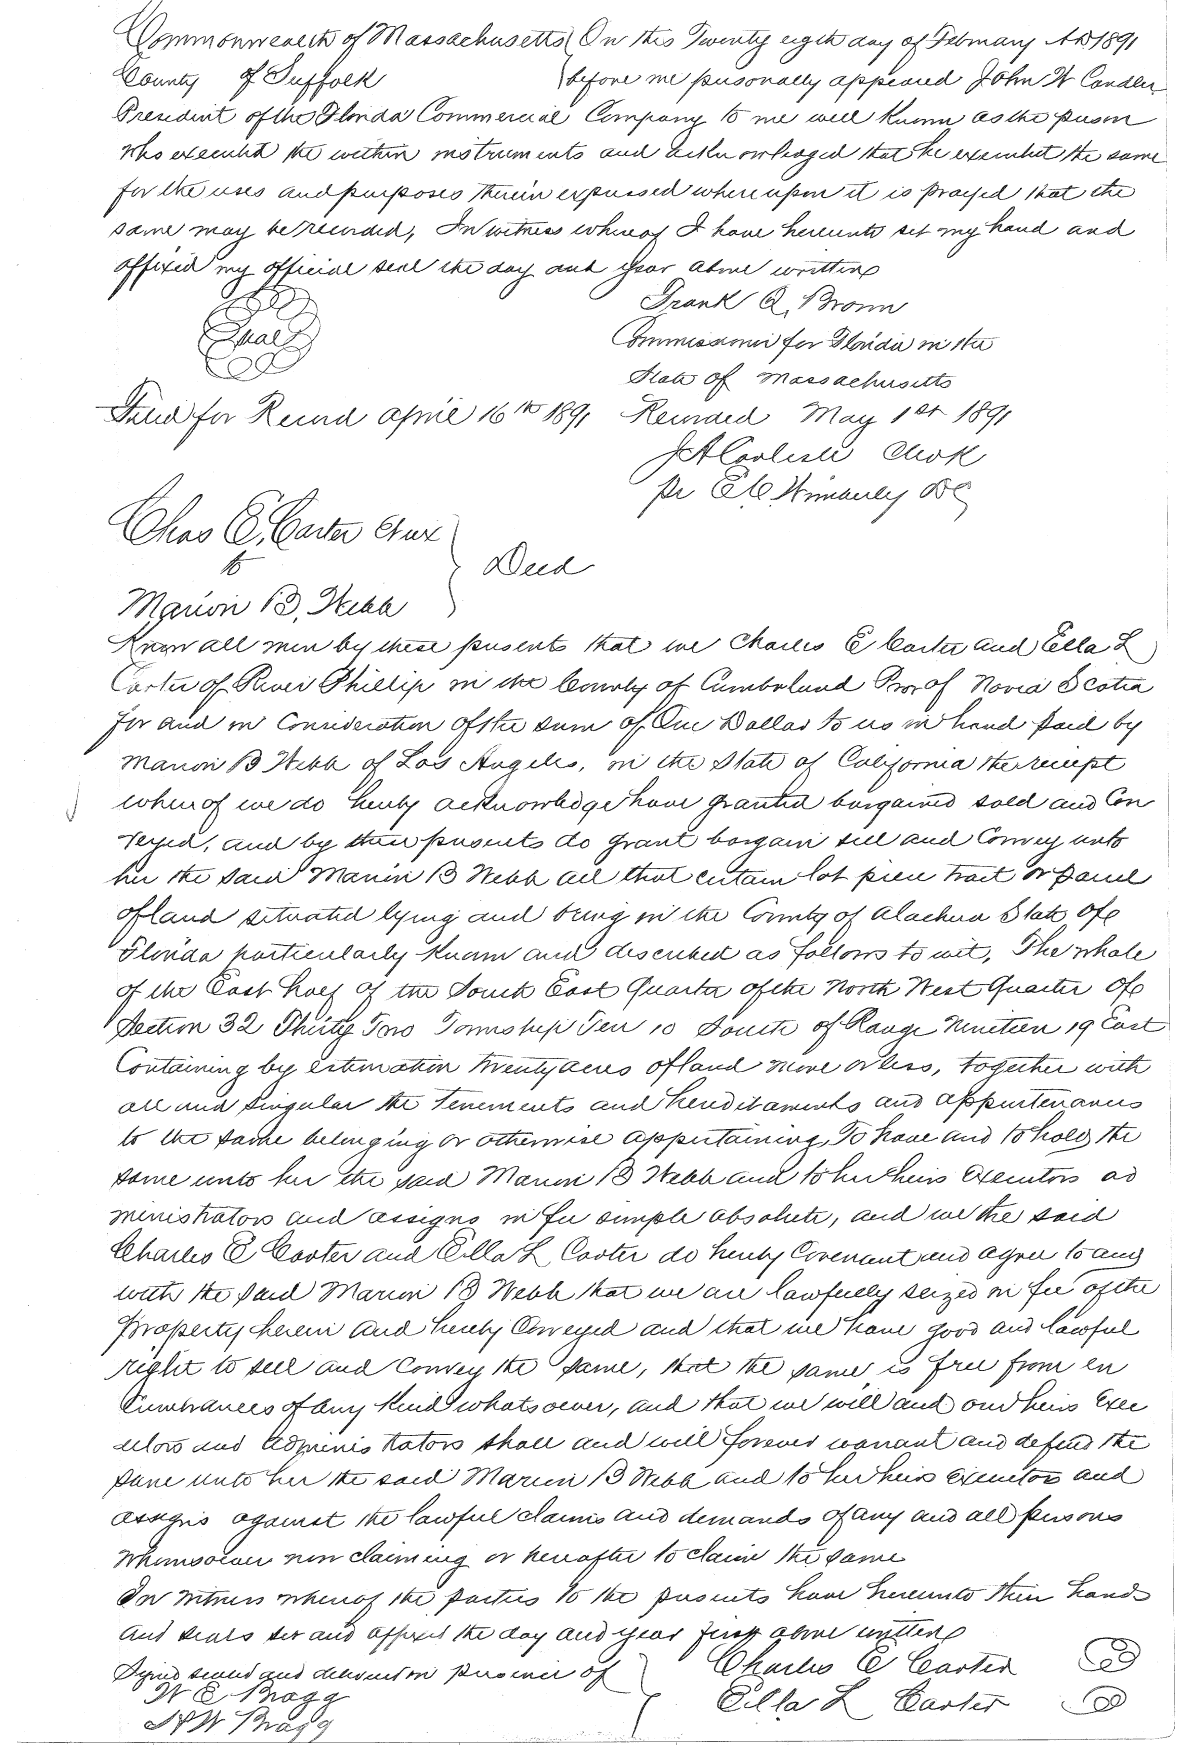 Commonwealth of Massachusetts ( On this Twenty eighth day of February AD 1891
County of Suffolk ) before me personally appeared John W Candler
President of the Florida Commercial Company to me well known as the person
who executed the within instruments and acknowledged that he executed the same
for the uses and purposes therein expressed whereupon it is prayed that the
same may be recorded, In witness whereof I have hereunto set my hand and
affixed my official seal the day and year above written
Seal
Frank Q. Brown
Commissioner for Florida in the
State of Massachusetts
Filed for Record April 16th 1891 Recorded May 1st 1891
J A Carlisle Clerk
pr E C Wimberly DC
Chas E. Carter et ux
to
Marion B. Webb
Deed
Know all men by these presents that we Charles E Carter and Ella L
Carter of River Phillip in the County of Cumberland Prov of Nova Scotia
for and in Consideration of the sum of One Dollar to us in hand paid by
Marion B Webb of Los Angeles, in the State of California the receipt
whereof we do hereby acknowledge have granted bargained sold and Con
veyed, and by these presents do grant bargain sell and Convey unto
her the said Marion B Webb all that certain lot piece tract or parcel
of land situated lying and being in the County of Alachua State of
Florida particularly known and described as follows to wit, The whole
of the East half of the South East Quarter of the North West Quarter of
Section 32 Thirty Two Township Ten 10 South of Range Nineteen 19 East
Containing by estimation twenty acres of land more or less, together with
all and singular the Tenements and hereditaments and appurtenances
to the same belonging or otherwise appertaining, To have and to hold the
same unto her the said Marion B Webb and to her heirs Executors ad
ministrators and assigns in fee simple absolute, and we the said
Charles E Carter and Ella L Carter do hereby Covenant and agree to and
with the said Marion B Webb that we are lawfully seized in fee of the
Property herein and hereby Conveyed and that we have good and lawful
right to sell and convey the same, that the same is free from en
cumbrances of any kind whatsoever, and that we will and our heirs Exec
utors and administrators shall and will forever warrant and defend the
same unto her the said Marion B Webb and to her heirs executors and
assigns against the lawful claims and demands of any and all persons
whomsoever now claiming or hereafter to claim the same
In witness whereof the parties to the presents have hereunto their hands
and seals set and affixed the day and year first above written
Signed sealed and delivered in presence of
W E Bragg
Charles E Carter
Ella L Carter